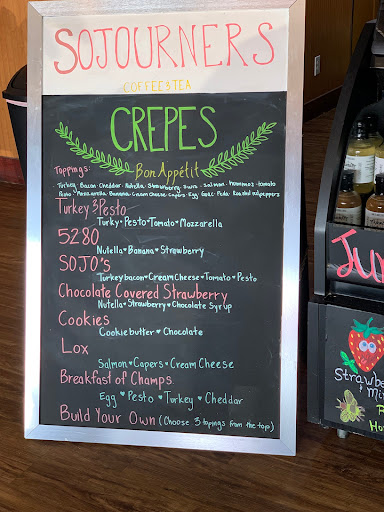 SOJOURNERS
COFFEE & TEA
CREPES
Bon Appétit
Toppings:
Turkey · Bacon · Cheddar · Nutella · Strawberry · salmon · hummoz · tomato
Pesto · Mozzarella · Banana · Cream Cheese · Capers · Egg · Goat · Feda · Roasted red peppers
Turkey & Pesto
Turky · Pesto · Tomato · Mazzarella
5280
Nutella · Banana · Strawberry
SOJO's
Turkey bacon · Cream Cheese · Tomato · Pesto
Chocolate Covered Strawberry
Nutella · Strawberry · Chocolate Syrup
Cookies
Cookie butter · Chocolate
Lox
Salmon · Capers · Cream Cheese
Breakfast of Champs
Egg · Pesto · Turkey · Cheddar
Build Your Own (Choose 3 topings from the top)